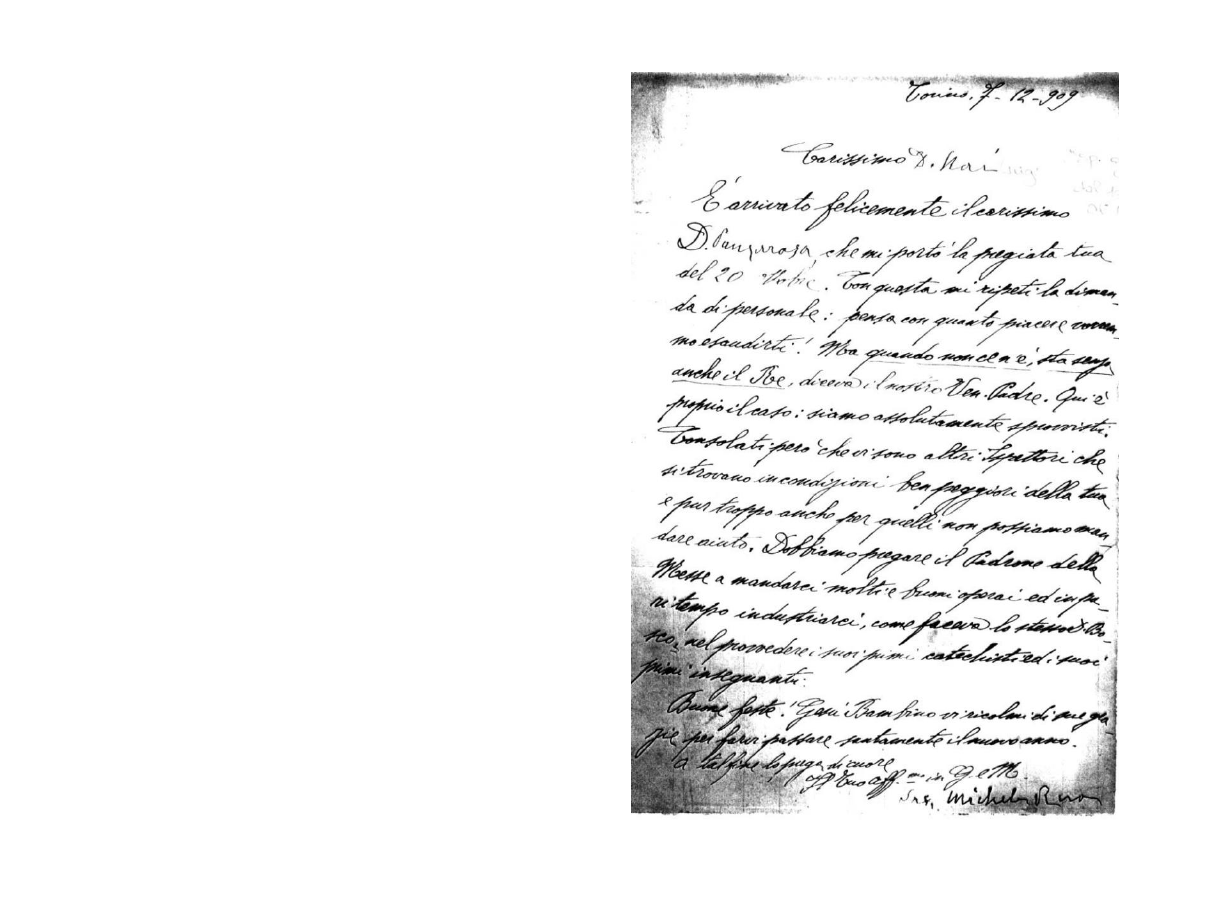 Torino, 7-12-909
Carissimo D. Nai
È arrivato felicemente il carissimo
D. Panzarasa, che mi portò la pregiata tua
del 20 9bre. Con questa mi ripeti la diman-
da di personale: pensa con quanto piacere vorrem-
mo esaudirti! Ma quando non ce n'è, sta senza
anche il Re, diceva il nostro Ven. Padre. Qui è
proprio il caso: siamo assolutamente sprovvisti.
Consolati però che vi sono altri Ispettori che
si trovano in condizioni ben peggiori della tua
e pur troppo anche per quelli non possiamo man-
dare aiuto. Dobbiamo pregare il Padrone della
Messe a mandarci molti e buoni operai ed in pa-
ri tempo industriarci, come faceva lo stesso D. Bo-
sco, nel provvedere i suoi primi catechisti ed i suoi
primi insegnanti.
Buone feste! Gesù Bambino vi ricolmi di sue gra-
zie per farvi passare santamente il nuovo anno.
A tal fine lo prega di cuore
Tuo aff.mo in G. e M.
Sac. Michele Rua